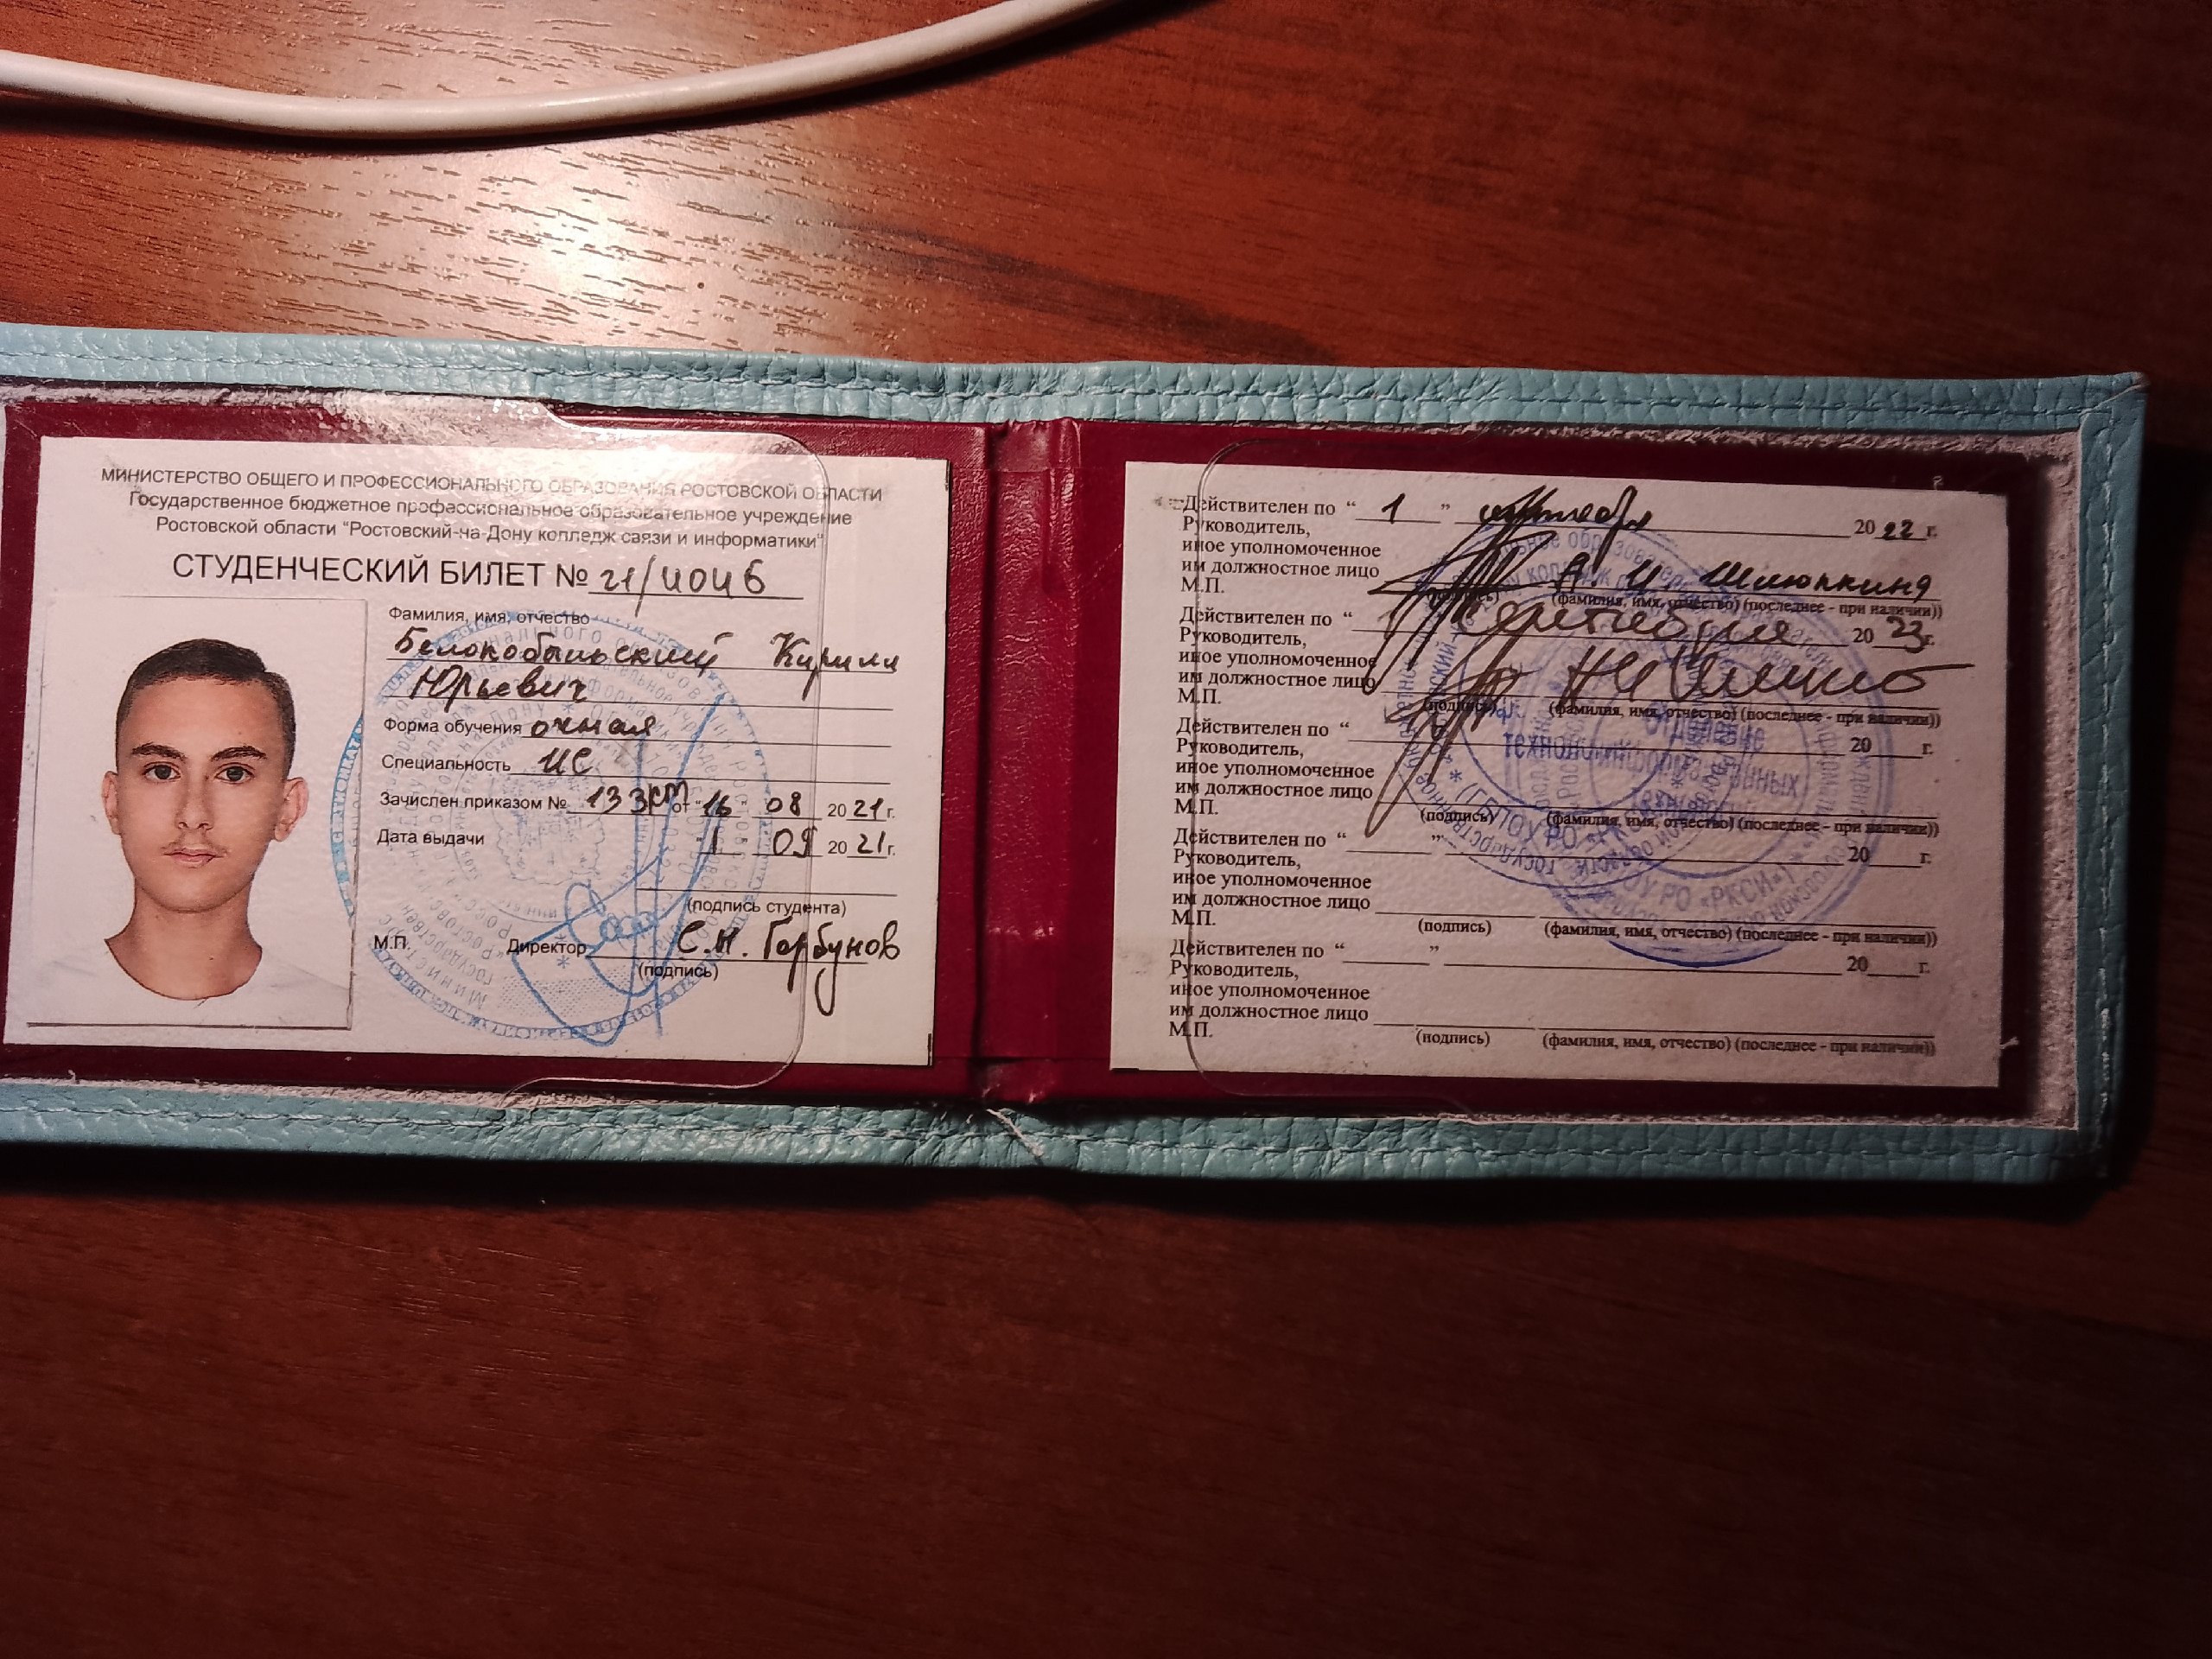 МИНИСТЕРСТВО ОБЩЕГО И ПРОФЕССИОНАЛЬНОГО ОБРАЗОВАНИЯ РОСТОВСКОЙ ОБЛАСТИ
Государственное бюджетное профессиональное образовательное учреждение
Ростовской области "Ростовский-на-Дону колледж связи и информатики"
СТУДЕНЧЕСКИЙ БИЛЕТ №
Фамилия, имя, отчество
Белокобыльский Кирилл
Юрьевич
Форма обучения очная
Специальность ИС
Зачислен приказом № 133 от "16 08 2021г.
Дата выдачи 1 09 2021г.
(подпись студента)
М.П. Директор С.Н. Горбунов
(подпись)
Действителен по " 1 " октября 2022 г.
Руководитель,
иное уполномоченное
им должностное лицо
М.П. (подпись) (фамилия, имя, отчество) (последнее - при наличии))
Действителен по " 2023г.
Руководитель,
иное уполномоченное
им должностное лицо
М.П. (подпись) (фамилия, имя, отчество) (последнее - при наличии))
Действителен по " 20 г.
Руководитель,
иное уполномоченное
им должностное лицо
М.П. (подпись) (фамилия, имя, отчество) (последнее - при наличии))
Действителен по " " 20 г.
Руководитель,
иное уполномоченное
им должностное лицо
М.П. (подпись) (фамилия, имя, отчество) (последнее - при наличии))
Действителен по " " 20 г.
Руководитель,
иное уполномоченное
им должностное лицо
М.П. (подпись) (фамилия, имя, отчество) (последнее - при наличии))